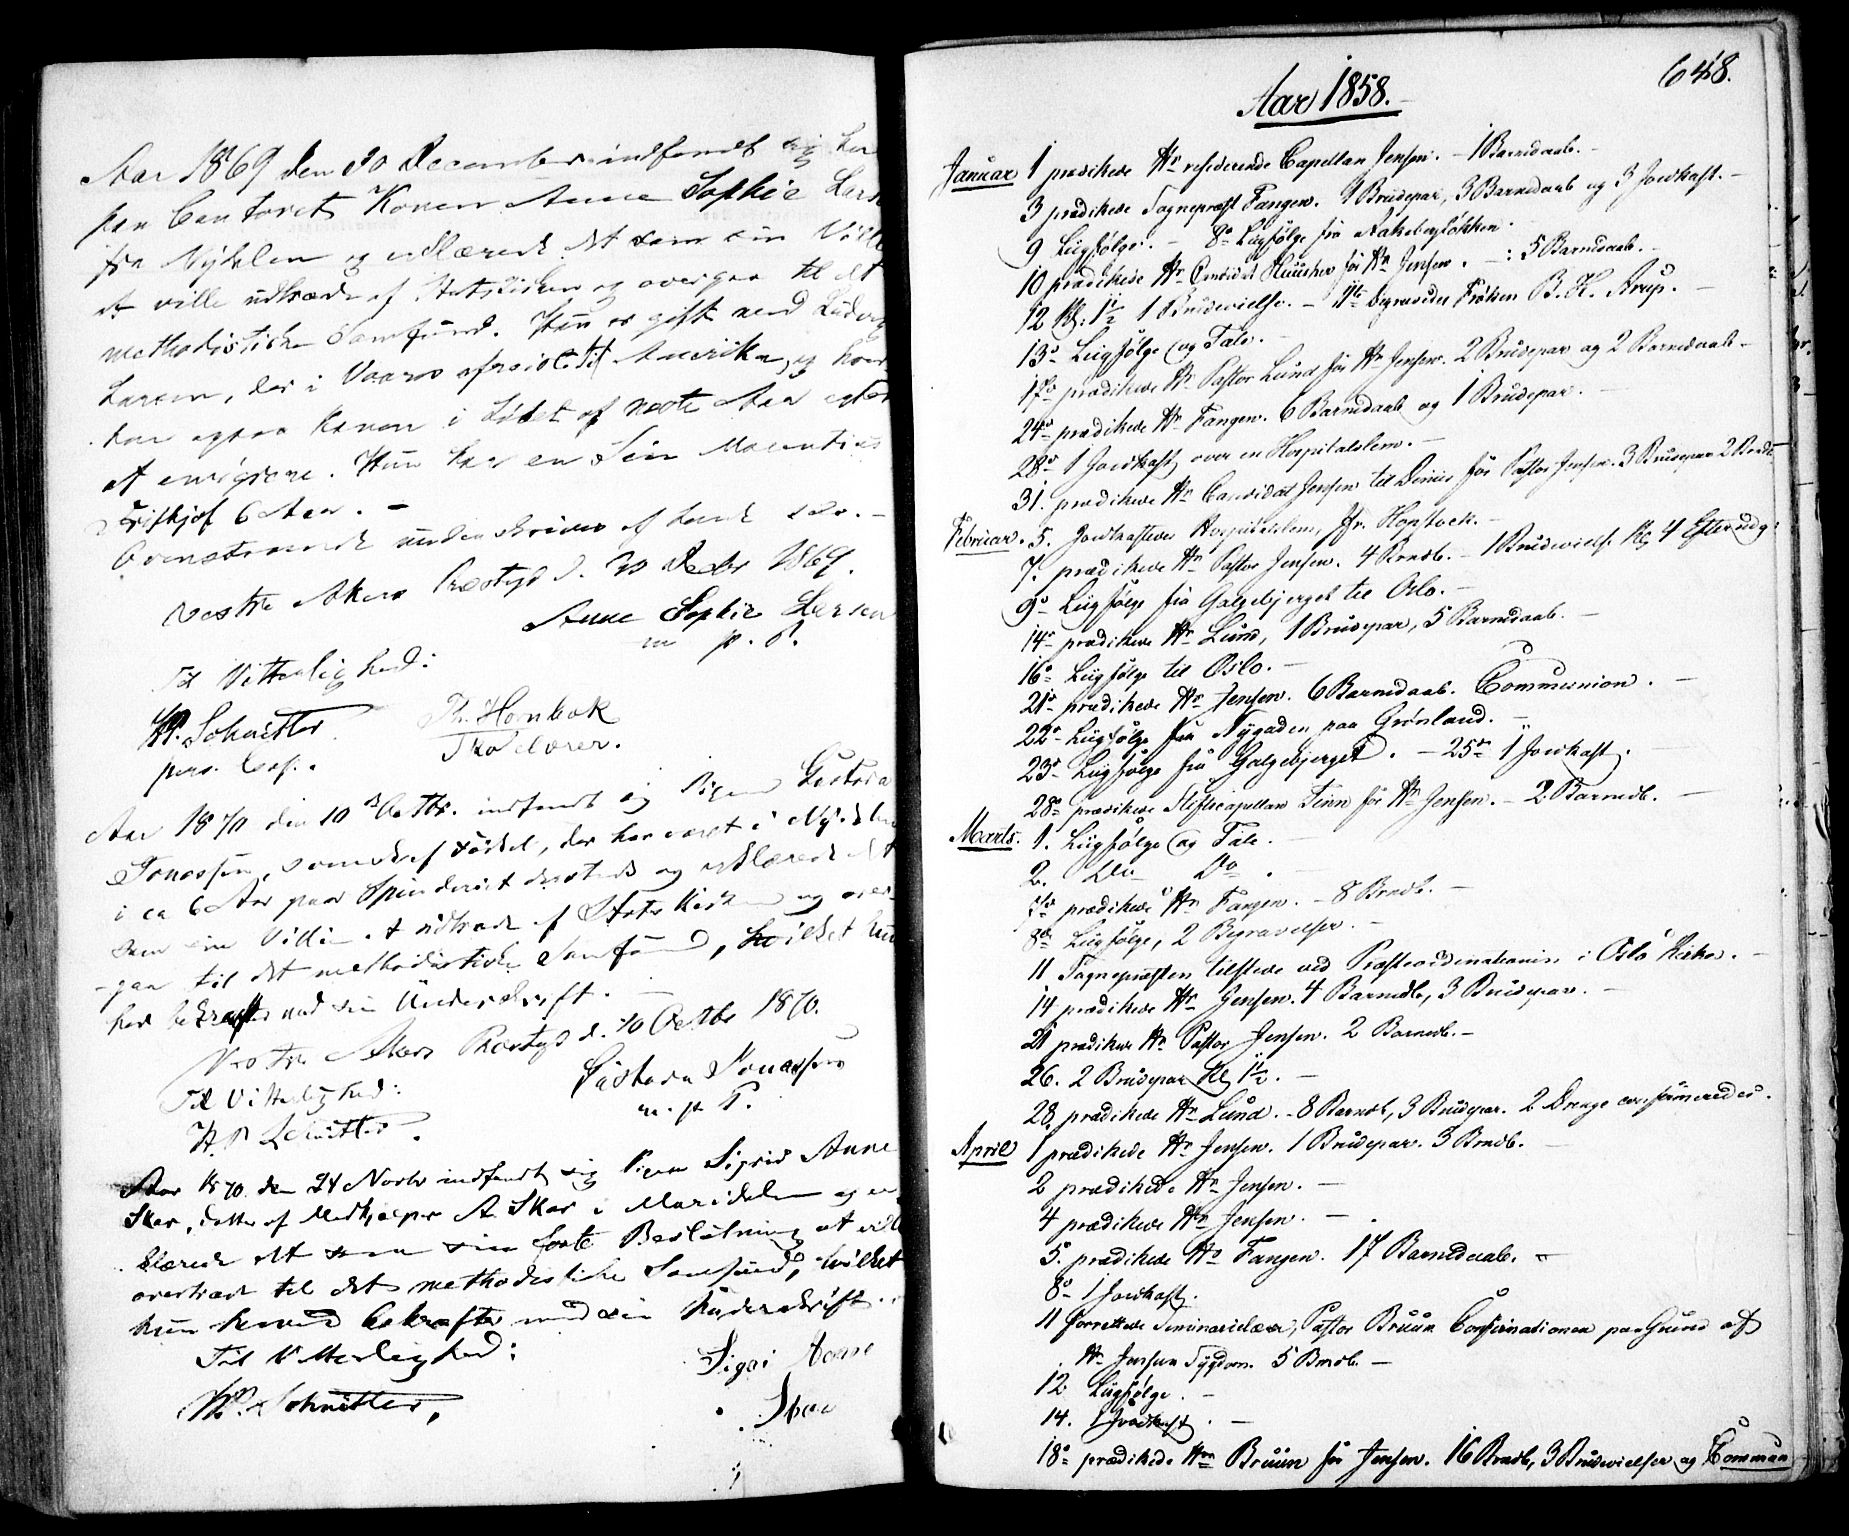 Aar 1869 den 30 December indfandt sig her
paa Contoret Konen Anne Sophie Lars
fra Nydalen og erklærede det som sin Villie
at ville udtræde af Statskirken og overgaa til det
methodistiske Samfund. Hun er gift med Ludvig
Larsen, der i Vaares afreiste til Amerika, og hvor
hen ogsaa Konen i Løbet af næste Aar agter
at emigrere. Hun har en Søn Mauritius
Frithjof 6 Aar. -
Ovenstaaende underskrives af hende selv. -
Vestre Akers Præstgd d. 30 Decbr 1869.
Anne Sophie Larsen
m p. P.
Til Vitterlighed:
H. P. Schnitler Th. Hornbæk
pers. Cap. Skolelærer.
Aar 1870 den 10 Octbr. indfandt sig Pigen Gustava
Jonassen, svensk af Fødsel, der har været i Nydalen
i ca 6 Aar paa Spinderiet dersteds og erklærede det
som sin Villie at udtræde af Statskirken og over-
gaa til det methodistiske Samfund, hvilket hun
her bekræfter med sin Underskrift. -
Vestre Akers Præstgd d. 10 Octbr 1870.
Til Vitterlighed: Gustava Jonassen
H. P. Schnitler. m. p. P.
Aar 1870 den 24 Novbr indfandt sig Pigen Sigrid Anne
Skar, datter af Medhjælper A. Skar i Maridalen og er-
klærede det som sin faste Beslutning at ville
overtræde til det methodistiske Samfund, hvilket
hun herved bekræfter med sin Underskrift.
Til Vitterlighed: Sigri Anne
H. P. Schnitler, Skar
648.
Aar 1858.
Januar 1 prædikede Hr residerende Capellan Jensen. - 1 Barnedaab. -
3 prædikede Sognepræst Fangen. 1 Brudepar, 3 Barnedaab og 3 Jordkast. -
9 Liigfølge. - 8de Liigfølge fra Aakebergløkken.
10 prædikede Hr Candidat for Hr Jensen. - : 5 Barnedaab. -
12 Kl. 1½ 1 Brudevielse. - Frøken B. K. Arup. -
13de Liigfølge og Tale. -
17de prædikede Hr Pastor Lund for Hr Jensen. 2 Brudepar og 2 Barnedaab -
24de prædikede Hr Fangen. 6 Barnedaab og 1 Brudepar. -
28de 1 Jordkast over en Hospitalslem. -
31. prædikede Hr Candidat Jensen til for Pastor Jensen. 3 Brudepar 2 Barnd.
Februar. 5. Jordkastedes Hospitalslem, Jfr. Hopstock. -
7. prædikede Hr Pastor Jensen. 4 Brndb. - 1 Brudevielse Kl 4 Eftermidg:
9de Liigfølge fra Galgebjerget til Oslo. -
14de prædikede Hr Lund, 1 Brudepar, 5 Barnedaab. -
16de Liigfølge til Oslo. -
21de prædikede Hr Jensen. 6 Barnedaab. Communion. -
22de Liigfølge fra Nygaden paa Grønland. -
23de Liigfølge fra Galgebjerget. - 25de 1 Jordkast.
28de prædikede Stiftscapellan Finn for Hr Jensen. - 2 Barnedb. -
Marts. 1. Liigfølge og Tale. -
2. Do Do.
7de prædikede Hr Fangen. - 8 Brndb. -
8de Liigfølge, 2 Begravelser. -
11 Sognepræsten tilstede ved Præsteordinationen i Oslo Kirke. -
14 prædikede Hr Jensen. 4 Barnedb, 3 Brudepar. -
21 prædikede Hr Pastor Jensen. 2 Barnedb. -
26. 2 Brudepar Kl 1½. -
28 prædikede Hr Lund. - 8 Barndb, 3 Brudepar. 2 Drenge confirmeredes.
April 1 prædikede Hr Jensen. 1 Brudepar. 3 Brndb. -
2 prædikede Hr Jensen. -
4 prædikede Hr Jensen. -
5. prædikede Hr Fangen. 17 Barnedaab. -
8de 1 Jordkast.
11 forrettede Seminarielærer, Pastor Bruun Confirmationen paa Grund af
Hr Jensens Sygdom. 5 Brndb. -
12 Liigfølge. -
14. 1 Jordkast. -
18de prædikede Hr Bruun for Jensen. 16 Brndb, 3 Brudevielser og Commun